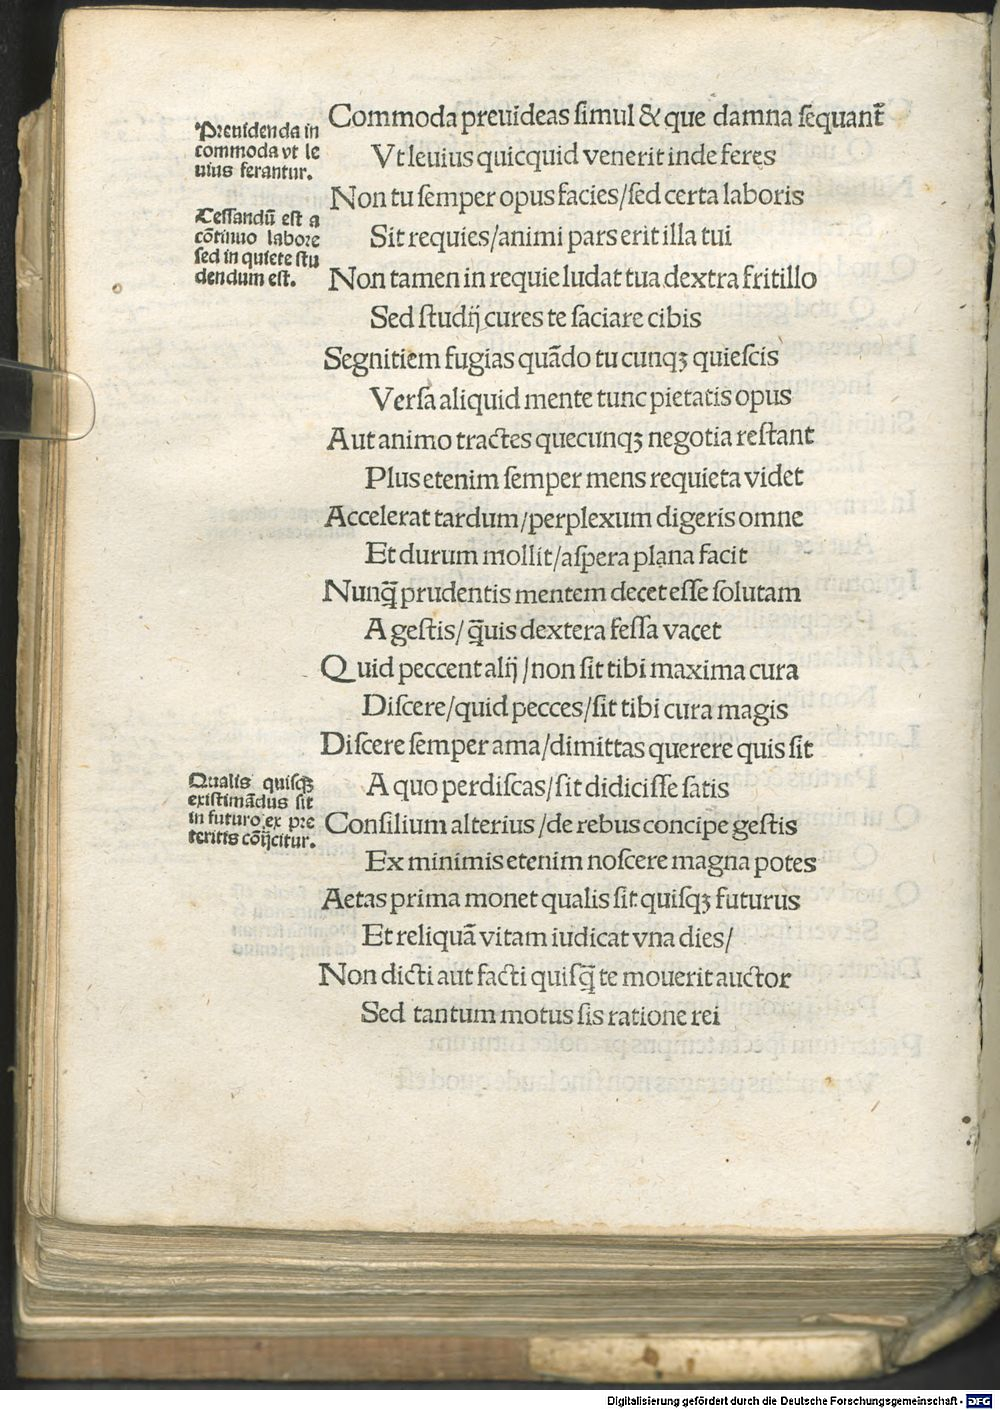 Preuidenda in
commoda vt le
uius ferantur.
Cessandū est a
cōtinuo labore
sed in quiete stu
dendum est.
Qualis quisqꝫ
existimādus sit
in futuro ex pre
teritis cōijcitur.
Commoda preuideas simul & que damna sequant̄
Vt leuius quicquid venerit inde feres
Non tu semper opus facies/sed certa laboris
Sit requies/animi pars erit illa tui
Non tamen in requie ludat tua dextra fritillo
Sed studij cures te saciare cibis
Segnitiem fugias quādo tu cunqꝫ quiescis
Versa aliquid mente tunc pietatis opus
Aut animo tractes quecunqꝫ negotia restant
Plus etenim semper mens requieta videt
Accelerat tardum/perplexum digeris omne
Et durum mollit/aspera plana facit
Nunq̄ prudentis mentem decet esse solutam
A gestis/q̄uis dextera fessa vacet
Quid peccent alij/non sit tibi maxima cura
Discere/quid pecces/sit tibi cura magis
Discere semper ama/dimittas querere quis sit
A quo perdiscas/sit didicisse satis
Consilium alterius/de rebus concipe gestis
Ex minimis etenim noscere magna potes
Aetas prima monet qualis sit quisqꝫ futurus
Et reliquā vitam iudicat vna dies/
Non dicti aut facti quisq̄ te mouerit auctor
Sed tantum motus sis ratione rei
Digitalisierung gefördert durch die Deutsche Forschungsgemeinschaft - DFG